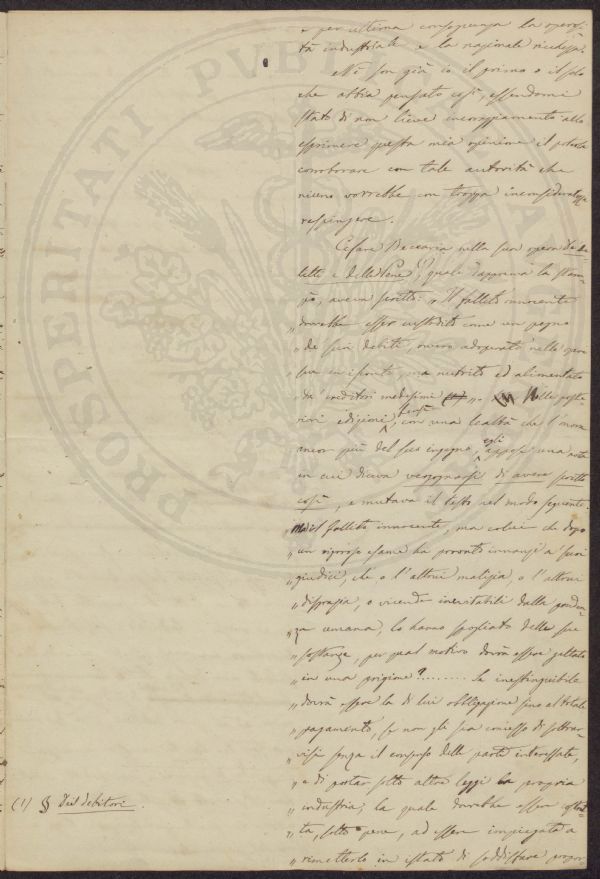 e per ultima conseguenza la operosi-
tà industriale e la nazionale ricchezza.
Nè son già io il primo o il solo
che abbia pensato così, essendomi
stato di non lieve incoraggiamento allo
esprimere questa mia opinione il poterla
corroborare con tale autorità che
niuno vorrebbe con troppa inconsideratezza
respingere.
Cesare Beccaria nella sua opera De De-
litti e delle Pene, quale dapprima la stam-
pò, aveva scritto: „ Il fallito innocente
„ dovrebbe esser custodito come un pegno
„ de' suoi debiti, ovvero adoperato nelle opere
ma nutrito ed alimentato
„ da' creditori medesimi (1) „. Nelle poste-
riori edizioni, con una lealtà che l'onora
ancor più del suo ingegno, egli appose una nota
in cui diceva vergognarsi di avere scritto
così, e mutava il testo nel modo seguente:
„ Ma il fallito innocente, ma colui che dopo
„ un rigoroso esame ha provato innanzi a' suoi
„ giudici, che o l'altrui malizia, o l'altrui
„ disgrazia, o vicende inevitabili dalla pruden-
„ za umana, lo hanno spogliato delle sue
„ sostanze, per qual motivo dovrà essere gettato
„ in una prigione? ........ Sia inestinguibile
„ dovrà essere la di lui obbligazione sino al totale
„ pagamento, se non gli sia concesso di sottrar-
„ visi senza il consenso delle parti interessate,
„ e di portar sotto altre leggi la propria
„ industria; la quale dovrebbe esser costret-
„ ta, sotto pene, ad essere impiegata a
„ rimetterlo in istato di soddisfare propor-
(1) § Dei debitori.
PROSPERITATI PVBLI AVG